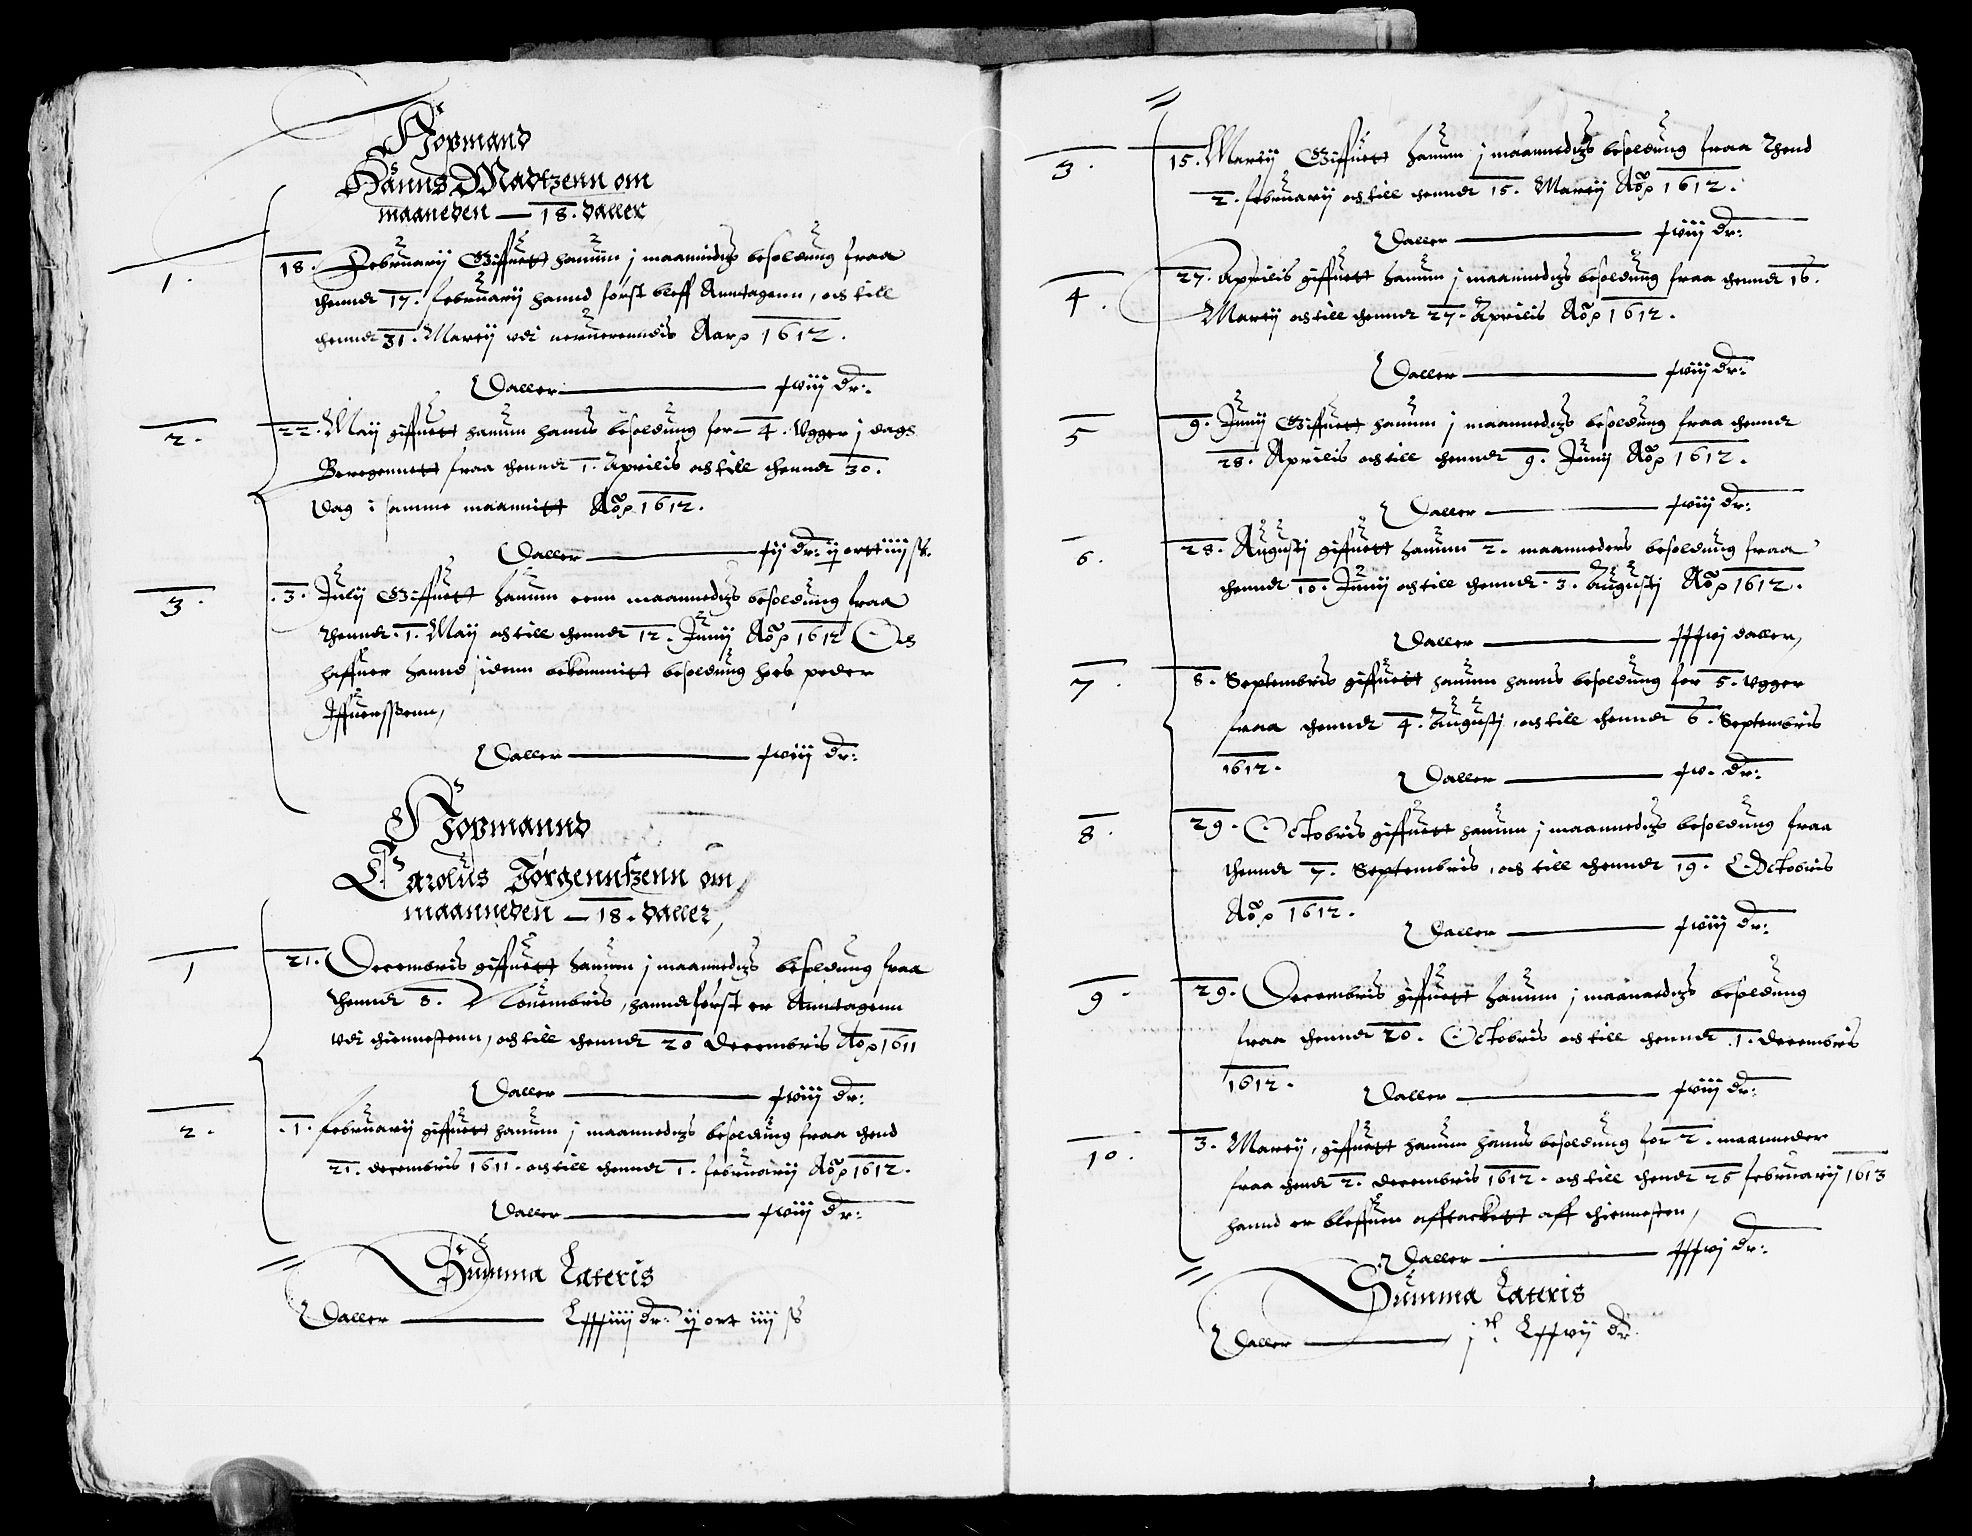 Høpmand
Hanns Madtzenn om
maaneden — 18. daller
1. 18. Februarij Giffuett hanum j maanidtz besolding fraa
thennd 17. februarij hannd først bleff Anntagenn, och till
thennd 31. Martij vdi neruerenndis Aar 1612.
Daller — xviij dr:
2. 22. Maij giffuett hanum hanns besolding for 4. Vgger j dags
Beregennett fraa thennd 1. Aprilis och till thennd 30.
dag i samme maanitt Aõo 1612.
Daller — xij dr: ij ortt iiij ß.
3. .3. Julij Giffuett hanum eenn maannedtzs besolding fraa
thennd .1. Maij och till thennd 12. Junij Aõo 1612 Och
haffuer hannd sidenn bekommitt besolding hoes peder
Iffuersßenn,
Daller — xviij dr:
Høpmannd
Carolus Jørgenntzenn om
maanneden — 18. daller,
1 21. Decembris giffuett hanum j maannedtzs besolding fraa
thennd 8. Nouembris, hannd først er Anntagenn
vdi thiennestenn, och till thennd 20 Decembris Aõo 1611
Daller — xviij dr:
2. .1. februarij giffuett hanum j maannedtzs besolding fraa thend
21. decembris 1611. och till thennd 1. februarij Aõo 1612.
Daller — xviij dr:
Summa Lateris
Daller — Lxxxiiij dr: ij ort iiij ß
3. 15. Martij Giffuett hanum j maannedtzs besolding fraa thend
2. februarij och till thennd 15. Martij Aõo 1612.
Daller — xviij dr:
4. 27. Aprilis giffuett hanum j maannedtzs besolding fraa thennd 16.
Martij och till thennd 27. Aprilis Aõo 1612.
Daller — xviij dr:
5 9. Junij Giffuett hanum j maannedtzs besolding fraa thennd
28. Aprilis och till thennd 9. Junij Aõo 1612.
Daller — xviij dr:
6. 28. Augustj giffuett hanum 2. maanneders besolding fraa
thennd 10. Junij och till thennd .3. Augustj Aõo 1612.
Daller — xxxvj daller,
7. 8. Septembris giffuett hanum hanns besolding for 5. Vgger
fraa thennd 4. Augustj, och till thennd 6. Septembris
1612.
Daller — xv. dr:
8. 29. Octobris giffuett hanum j maannedtzs besolding fraa
thennd 7. Septembris, och till thennd 19. Octobris
Aõo 1612.
Daller — xviij dr:
9. 29. Decembris giffuett hanum j maannedtzs besolding
fraa thennd 20. Octobris och till thennd .1. decembris
1612.
Daller — xviij dr:
10. 3. Martij, giffuett hanum hanns besolding for 2. maanneder
fraa thend 2. decembris 1612. och till thend 26 februarij 1613
hannd er bleffuen afftackett aff thiennesten,
Daller — xxxvj dr:
Summa Lateris
Daller — jc Lxxvij dr.